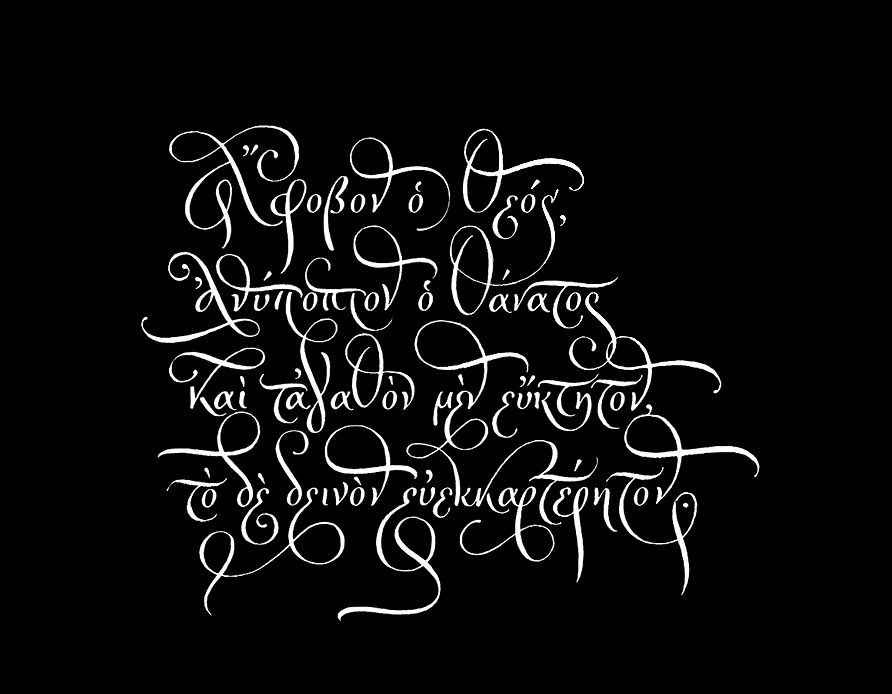 Ἄφοβον ὁ θεός,
ἀνύποπτον ὁ θάνατος
καὶ τἀγαθὸν μὲν εὔκτητον,
τὸ δὲ δεινὸν εὐεκκαρτέρητον.